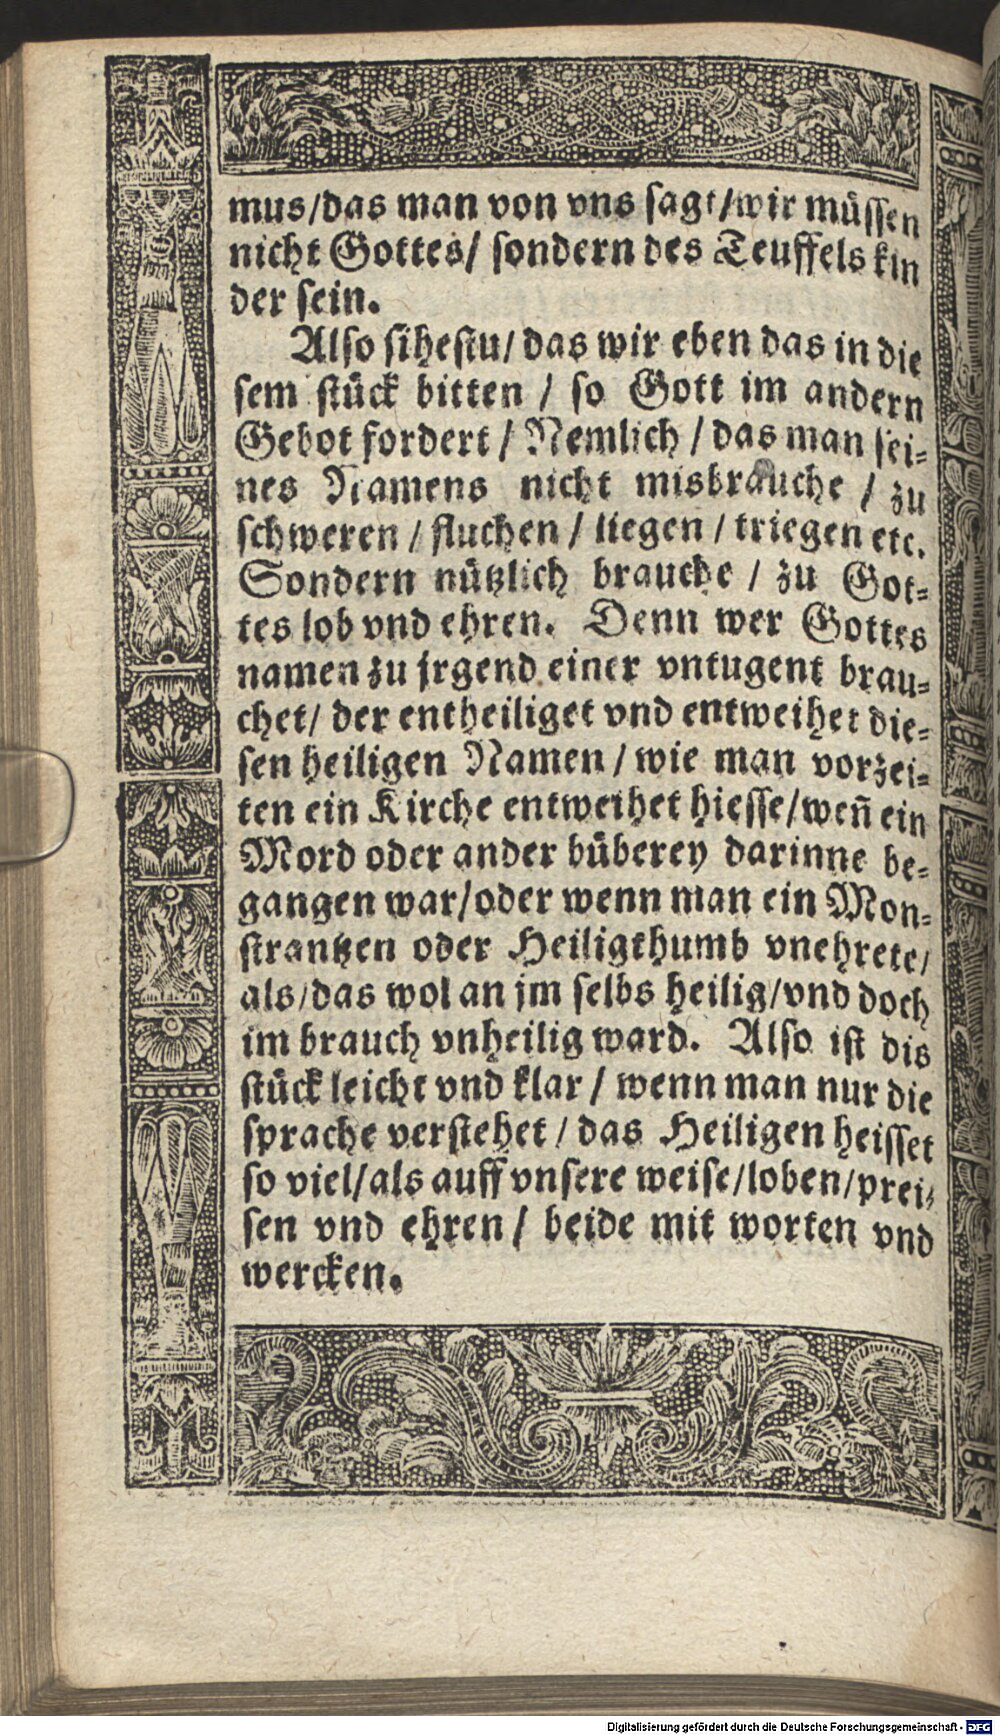 mus/das man von vns sagt/wir müssen
nicht Gottes/ sondern des Teuffels kin
der sein.
Also sihestu/ das wir eben das in die
sem stück bitten / so Gott im andern
Gebot fordert / Nemlich / das man sei⸗
nes Namens nicht misbrauche / zu
schweren / fluchen / liegen / triegen etc.
Sondern nützlich brauche / zu Got⸗
tes lob vnd ehren. Denn wer Gottes
namen zu jrgend einer vntugent brau⸗
chet/ der entheiliget vnd entweihet die⸗
sen heiligen Namen / wie man vorzei⸗
ten ein Kirche entweihet hiesse/weñ ein
Mord oder ander büberey darinne be⸗
gangen war/oder wenn man ein Mon⸗
strantzen oder Heiligthumb vnehrete/
als/das wol an jm selbs heilig/vnd doch
im brauch vnheilig ward. Also ist dis
stück leicht vnd klar / wenn man nur die
sprache verstehet / das Heiligen heisset
so viel/als auff vnsere weise/loben/prei⸗
sen vnd ehren / beide mit worten vnd
wercken.
Digitalisierung gefördert durch die Deutsche Forschungsgemeinschaft - DFG